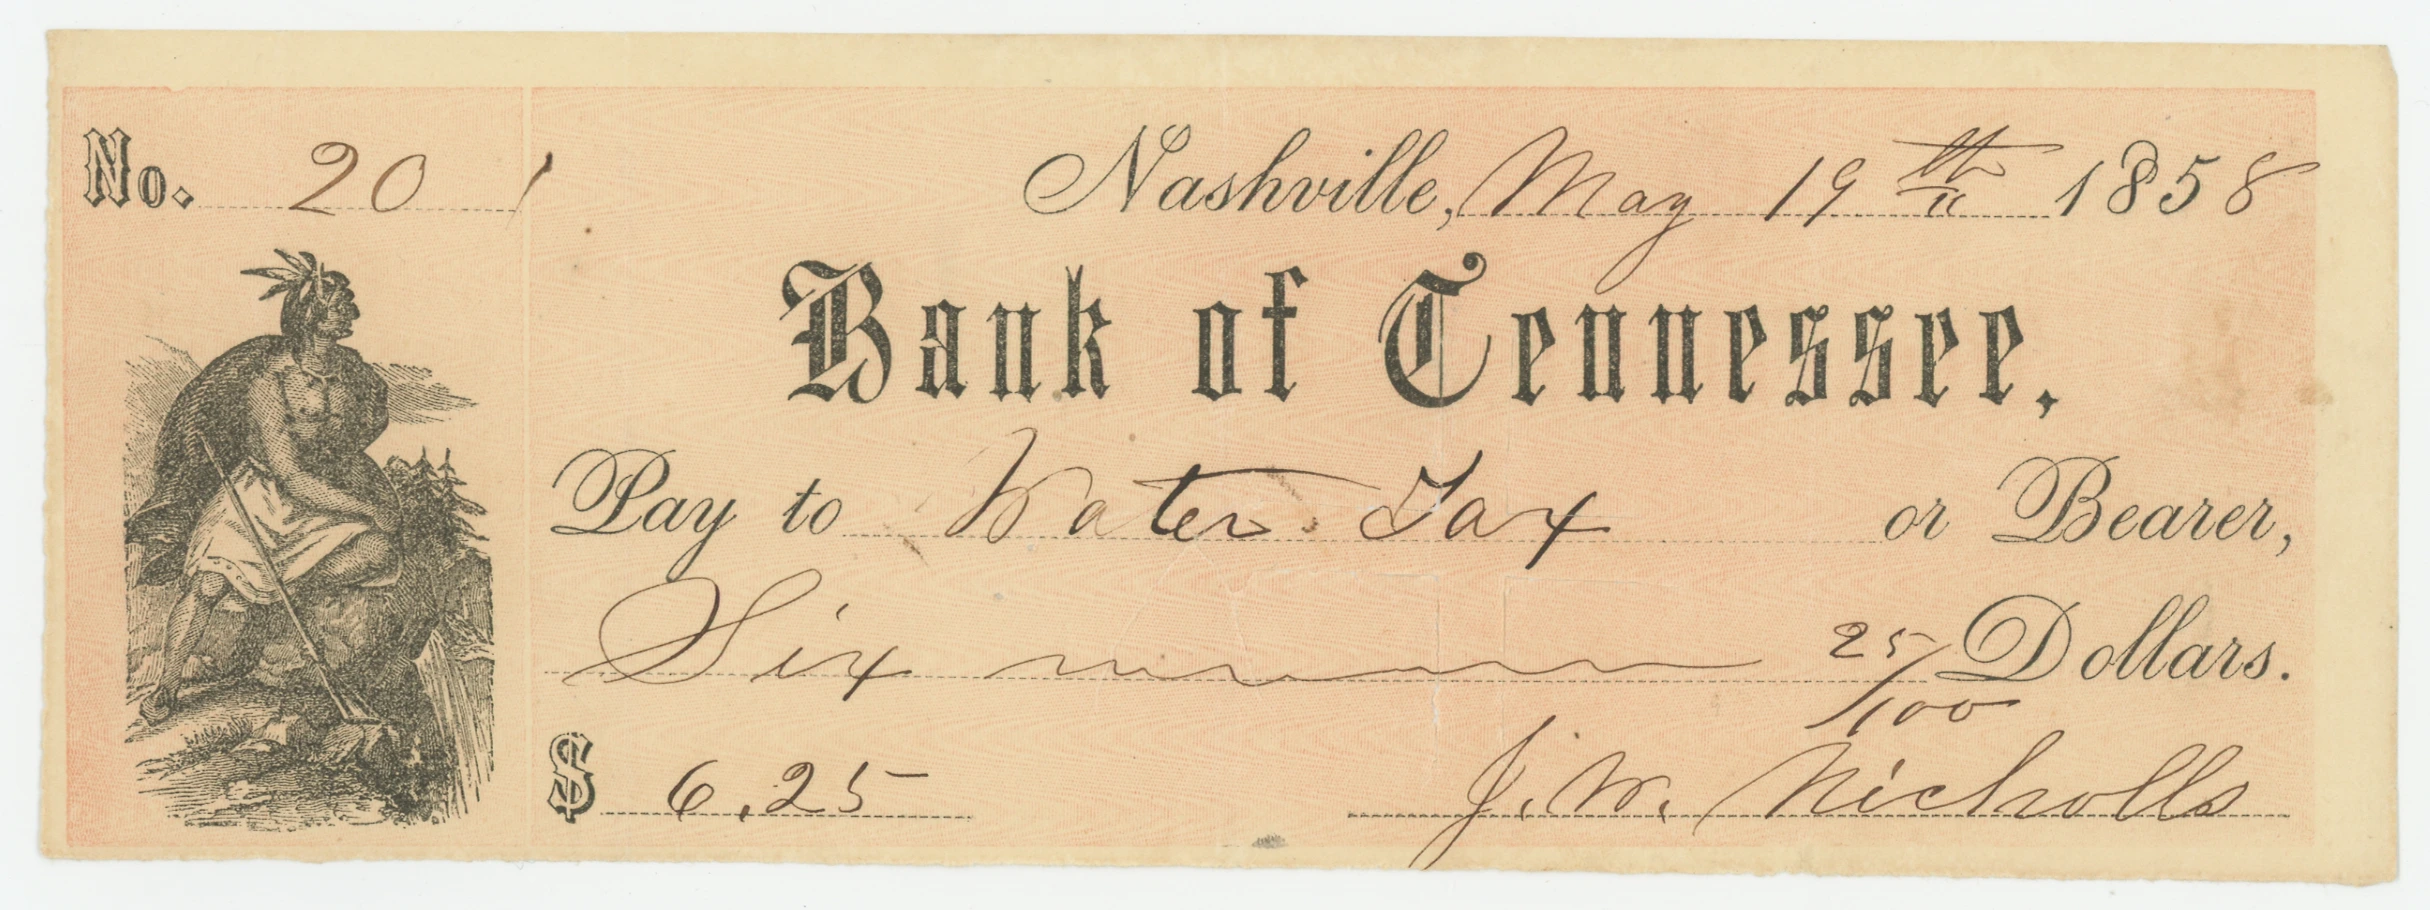 No. 20
Nashville, May 19th 1858
Bank of Tennessee.
Pay to Water Tax or Bearer,
Six 25/100 Dollars.
$ 6.25
J. W. Nicholls